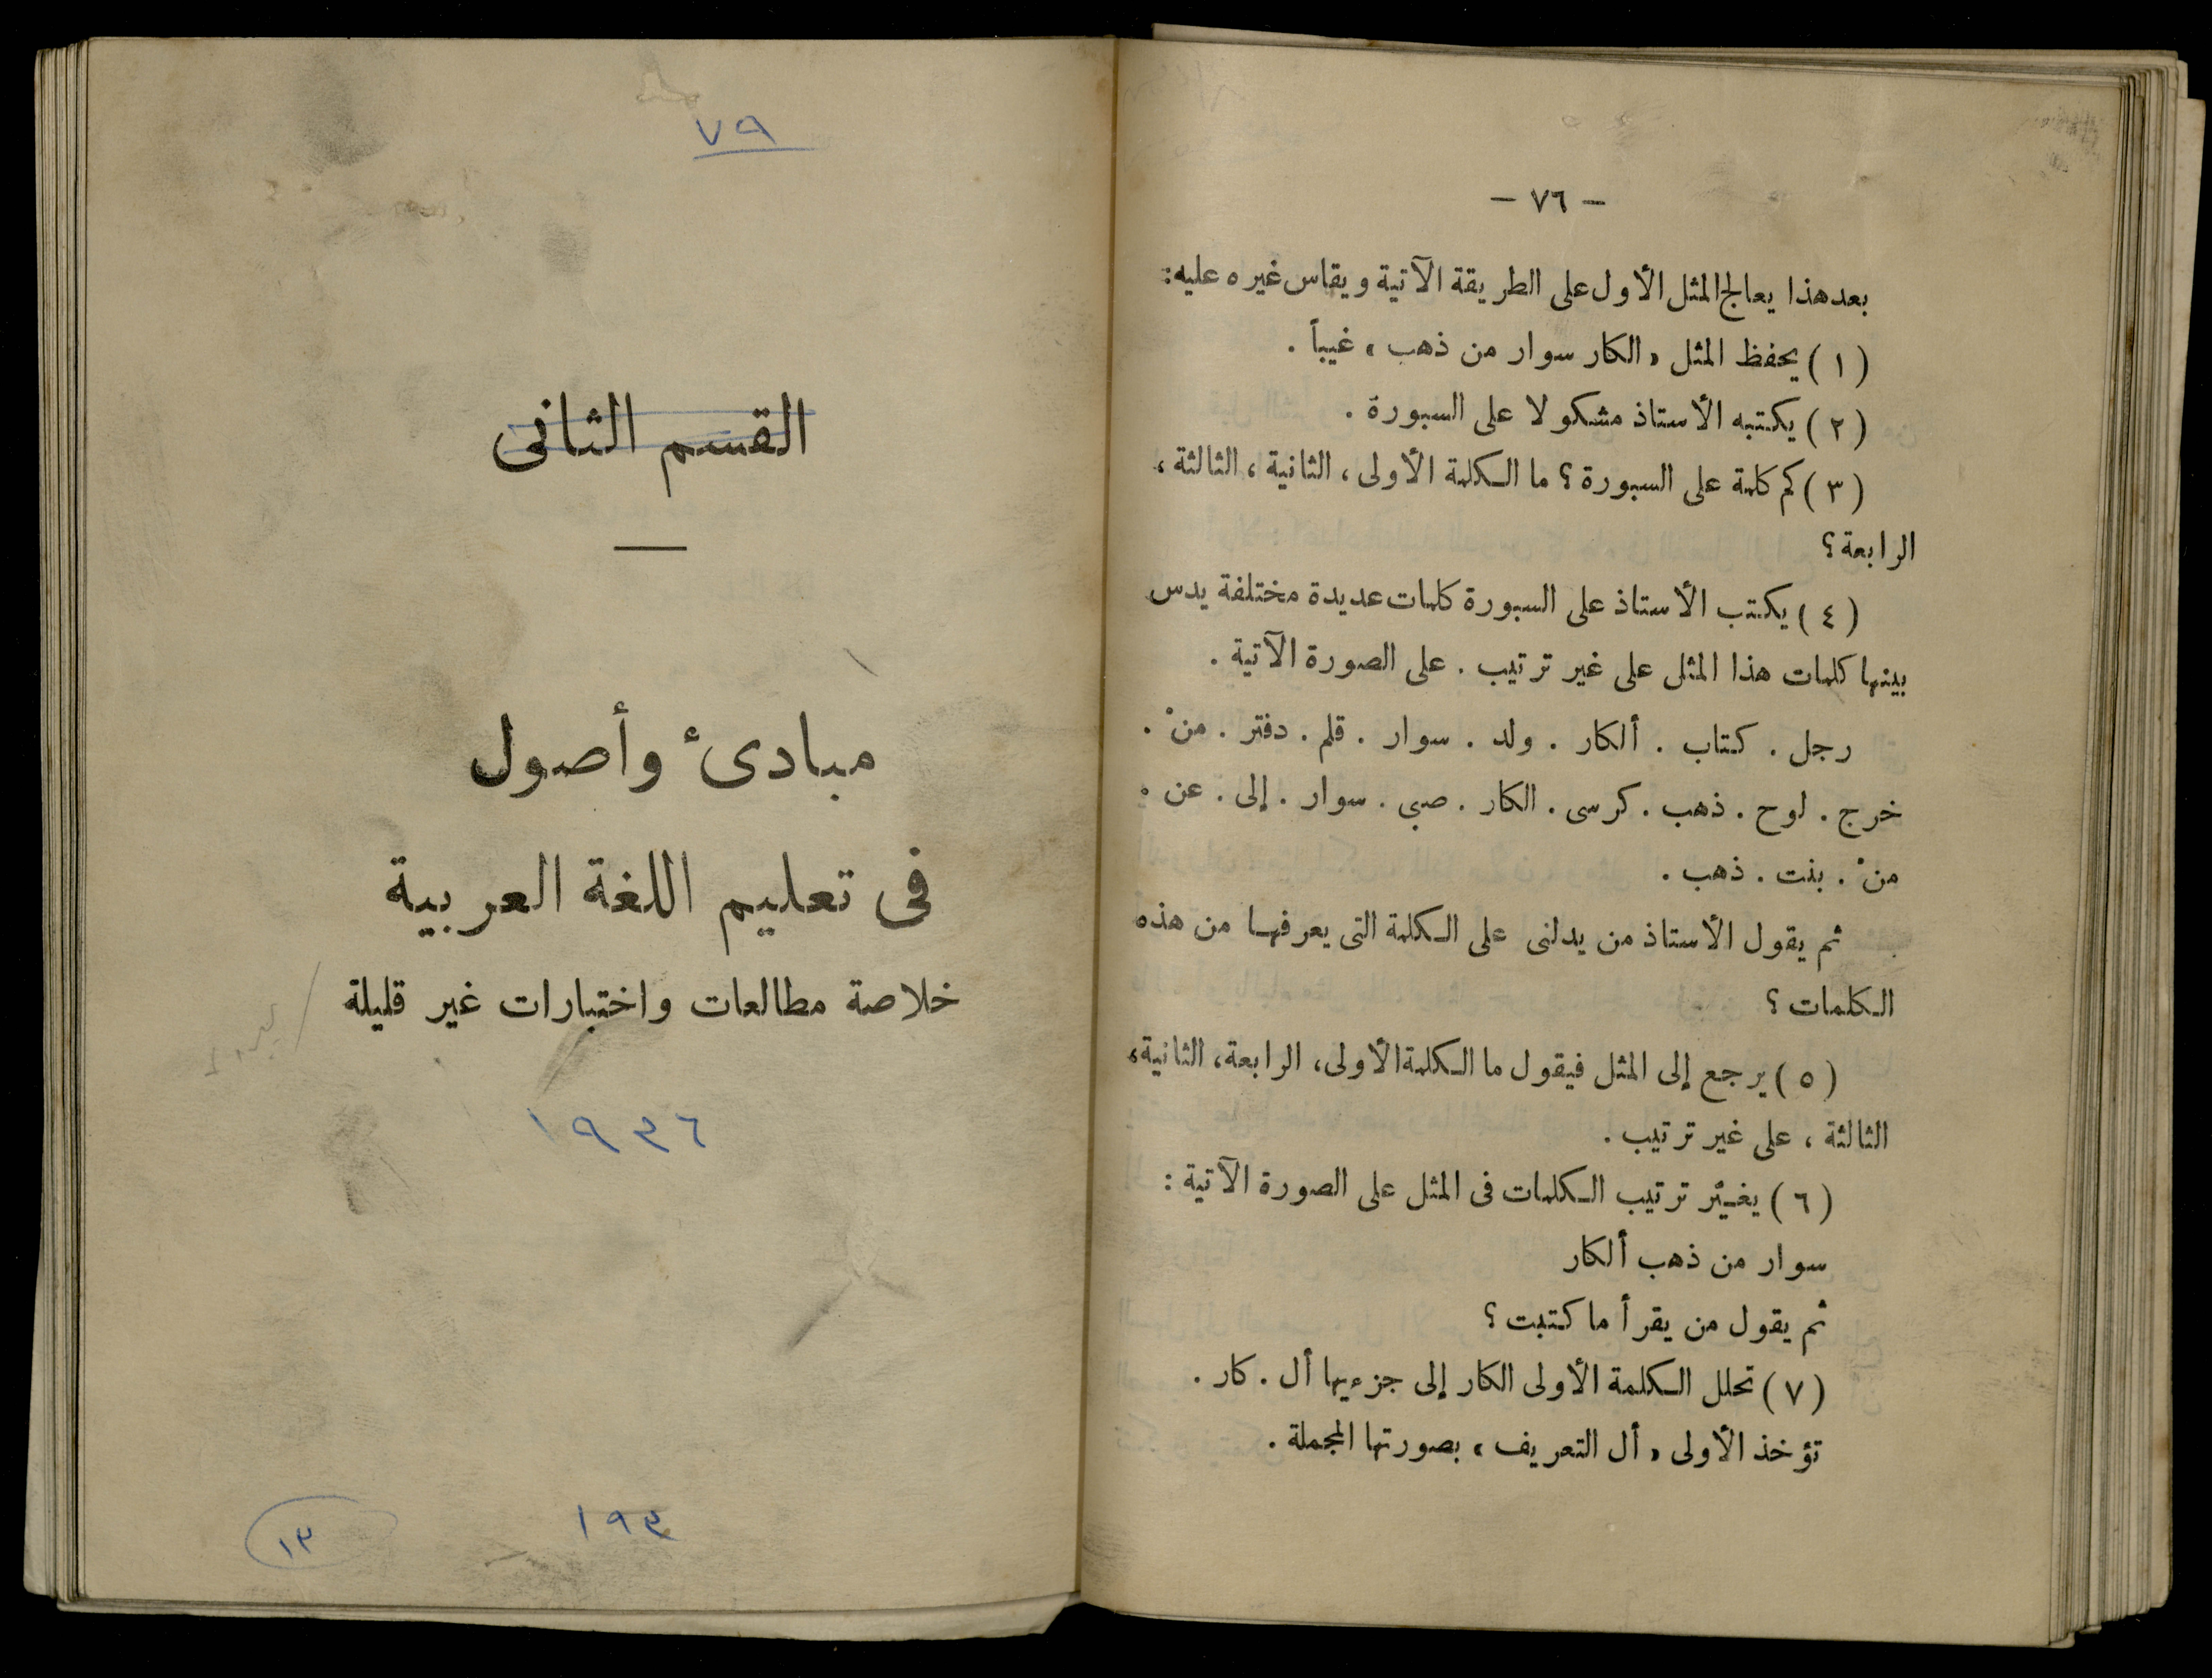 — ٧٦ —
بعد هذا يعالج المثل الأول على الطريقة الآتية ويقاس غيره عليه:
(١) يحفظ المثل « الكار سوار من ذهب » غيباً .
(٢) يكتبه الأستاذ مشكولا على السبورة .
(٣) كم كلمة على السبورة ؟ ما الكلمة الأولى ، الثانية ، الثالثة ،
الرابعة ؟
(٤) يكتب الأستاذ على السبورة كلمات عديدة مختلفة يدس
بينها كلمات هذا المثل على غير ترتيب . على الصورة الآتية .
رجل . كتاب . ألكار . ولد . سوار . قلم . دفتر . منْ .
خرج . لوح . ذهب . كرسى . الكار . صبى . سوار . إلى . عن .
منْ . بنت . ذهب .
ثم يقول الأستاذ من يدلنى على الكلمة التى يعرفها من هذه
الكلمات ؟
(٥) يرجع إلى المثل فيقول ما الكلمة الأولى ، الرابعة ، الثانية ،
الثالثة ، على غير ترتيب .
(٦) يغيّر ترتيب الكلمات فى المثل على الصورة الآتية :
سوار من ذهب ألكار
ثم يقول من يقرأ ما كتبت ؟
(٧) تحلل الكلمة الأولى الكار إلى جزءيها أل . كار .
تؤخذ الأولى « أل التعريف » بصورتها المجملة .
٧٩
القسم الثانى
مبادىء وأصول
فى تعليم اللغة العربية
خلاصة مطالعات واختبارات غير قليلة
١٩٣٦
١٩٣
١٣